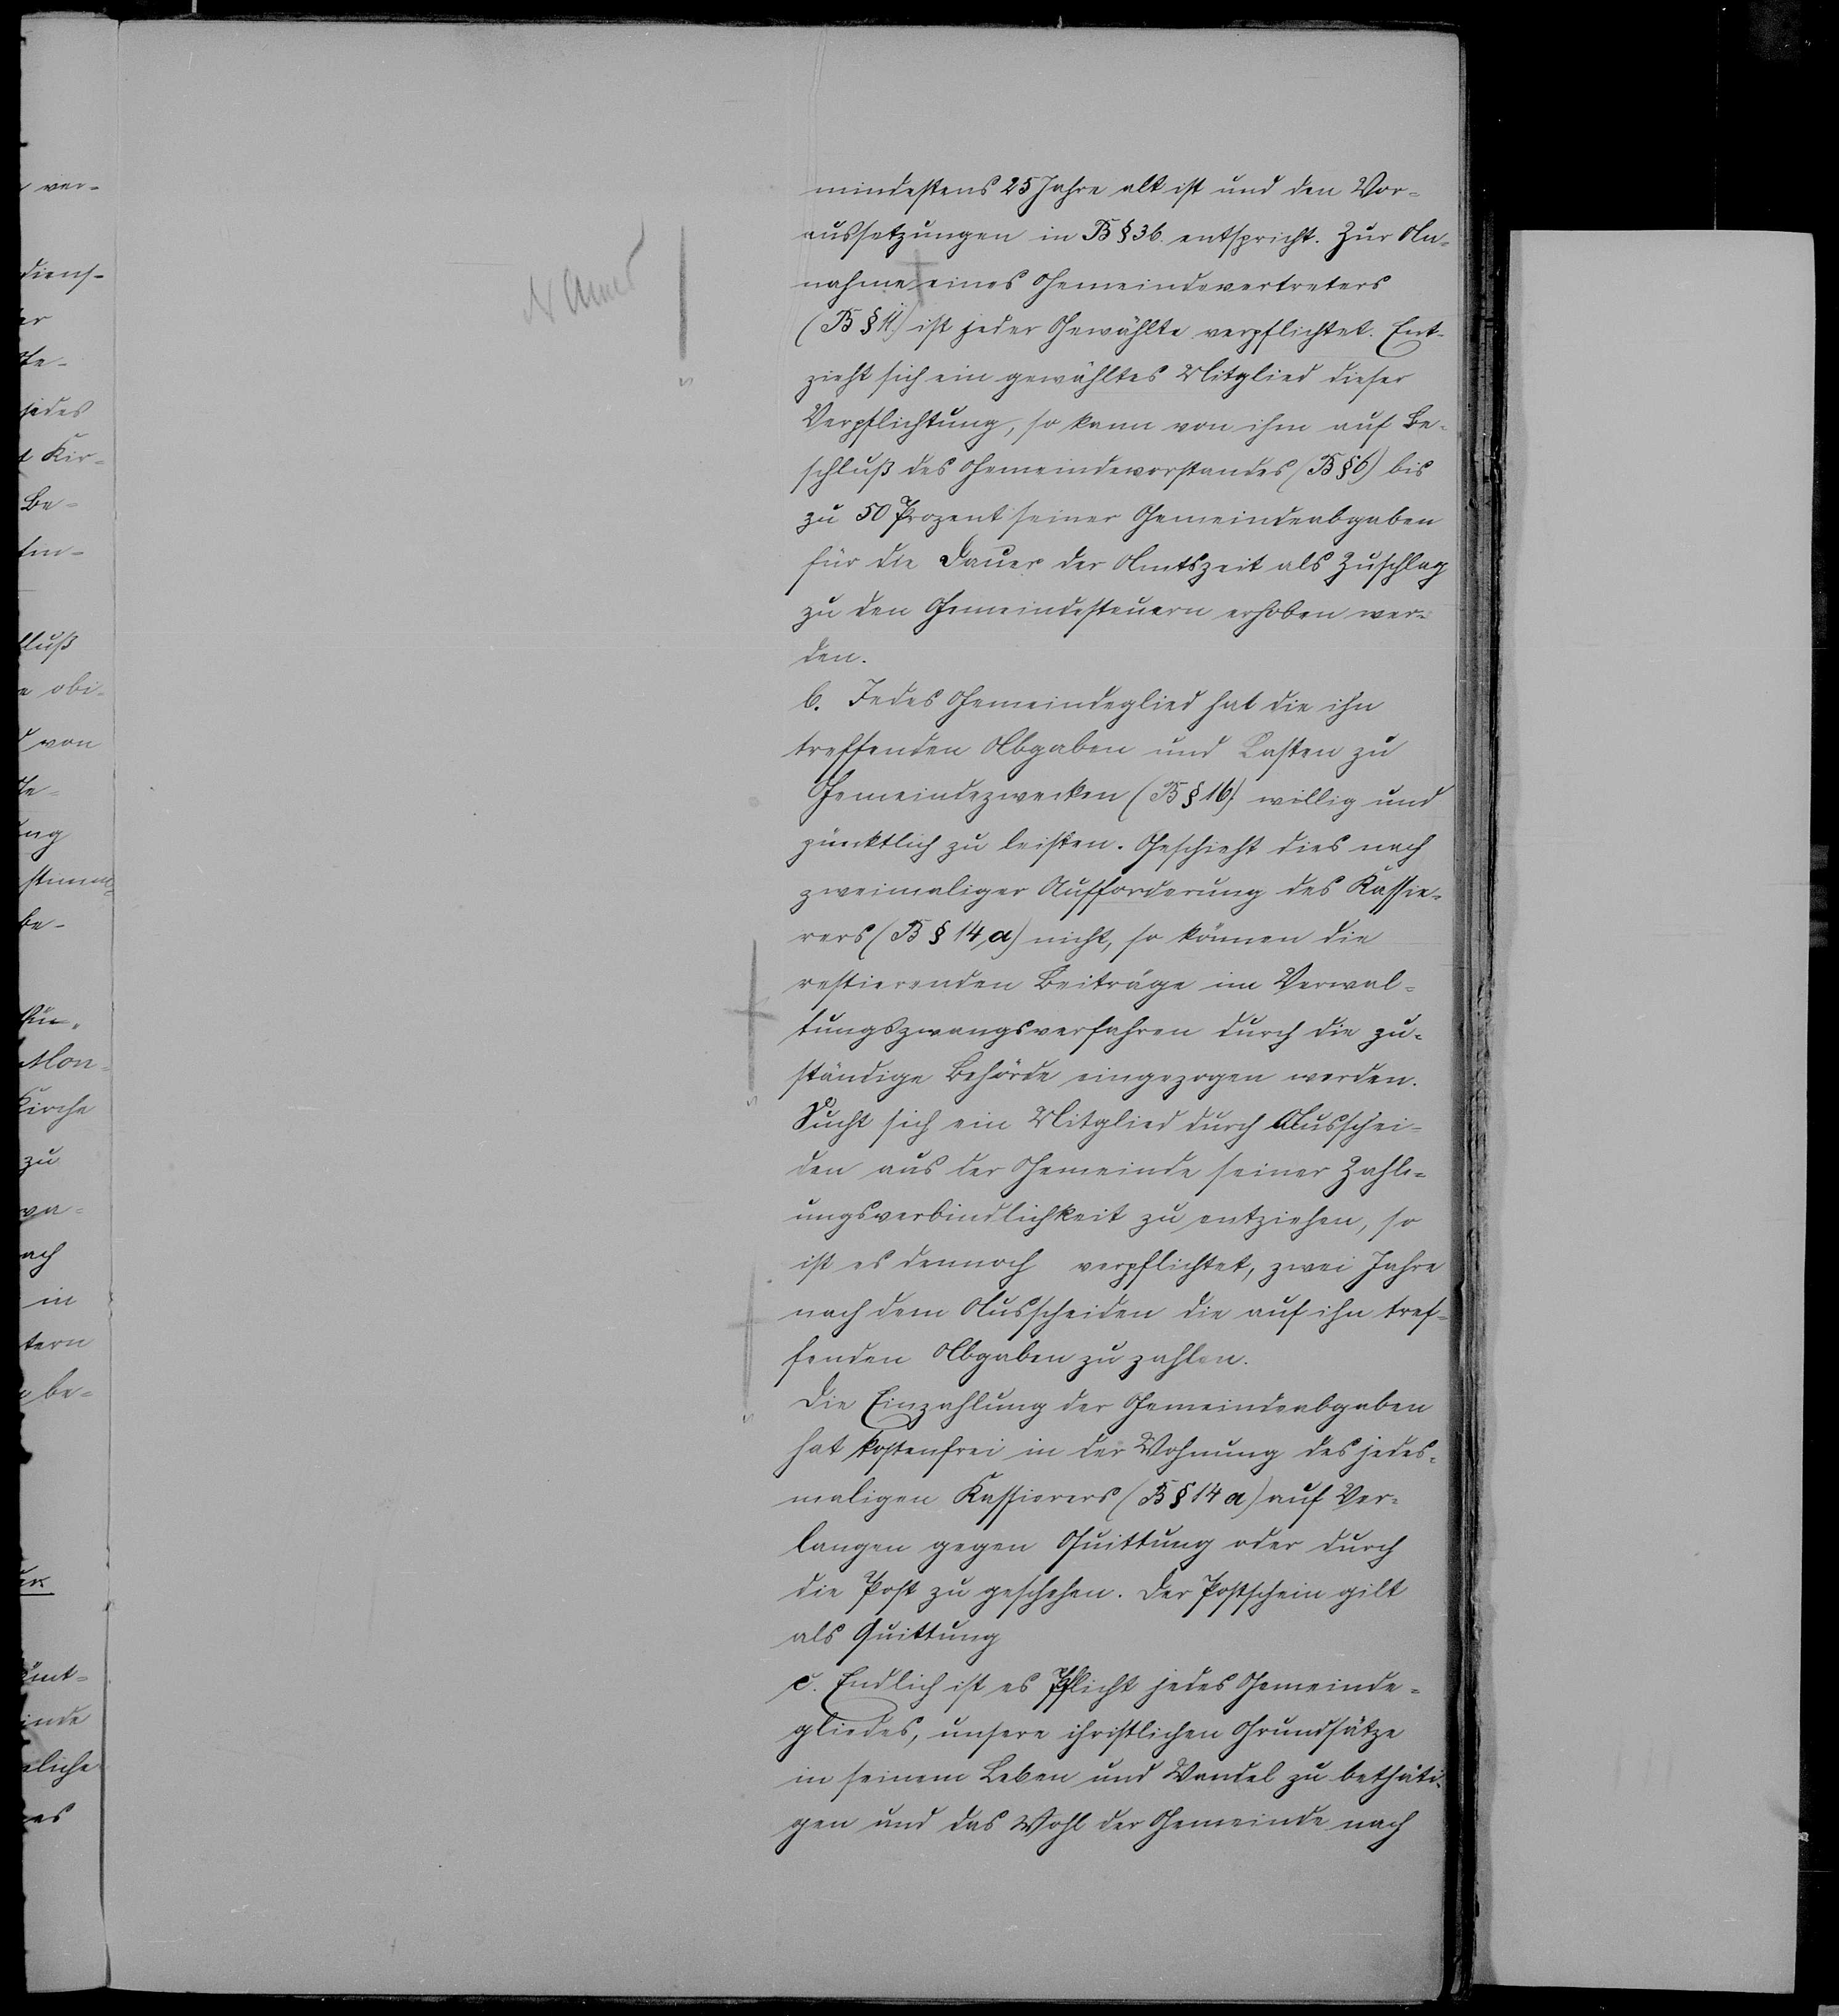 mindestens 25 Jahre alt ist und den Vor-
aussetzungen in B § 36. entspricht. Zur An-
nahme eines Gemeindevertreters
(B § 11.) ist jeder Gewählte verpflichtet. Ent-
zieht sich ein gewähltes Mitglied dieser
Verpflichtung, so kann von ihm auf Be-
schluß des Gemeindevorstandes (B § 6) bis
zu 50 Prozent seiner Gemeindeabgaben
für die Dauer der Amtszeit als Zuschlag
zu den Gemeindesteuern erhoben wer-
den.
b. Jedes Gemeindeglied hat die ihn
treffenden Abgaben und Lasten zu
Gemeindezwecken (B § 16) willig und
pünktlich zu leisten. Geschieht dies nach
zweimaliger Aufforderung des Kassie-
rers (B § 14, a) nicht, so können die
restierenden Beiträge im Verwal-
tungszwangsverfahren durch die zu-
ständige Behörde eingezogen werden.
Sucht sich ein Mitglied durch Ausschei-
den aus der Gemeinde seiner Zahl-
ungsverbindlichkeit zu entziehen, so
ist es dennoch verpflichtet, zwei Jahre
nach dem Ausscheiden die auf ihn tref-
fenden Abgaben zu zahlen.
Die Einzahlung der Gemeindeabgaben
hat kostenfrei in der Wohnung des jedes-
maligen Kassierers (B § 14 a) auf Ver-
langen gegen Quittung oder durch
die Post zu geschehen. Der Postschein gilt
als Quittung
c. Endlich ist es Pflicht jedes Gemeinde-
gliedes, unsere christlichen Grundsätze
in seinem Leben und Wandel zu bethäti-
gen und das Wohl der Gemeinde nach
ver-
diens-
er
jedes
Kir-
Be-
luß
obi-
von
ng
be-
Mon-
Kirche
zu
ach
in
tern
be-
inde
liche
es